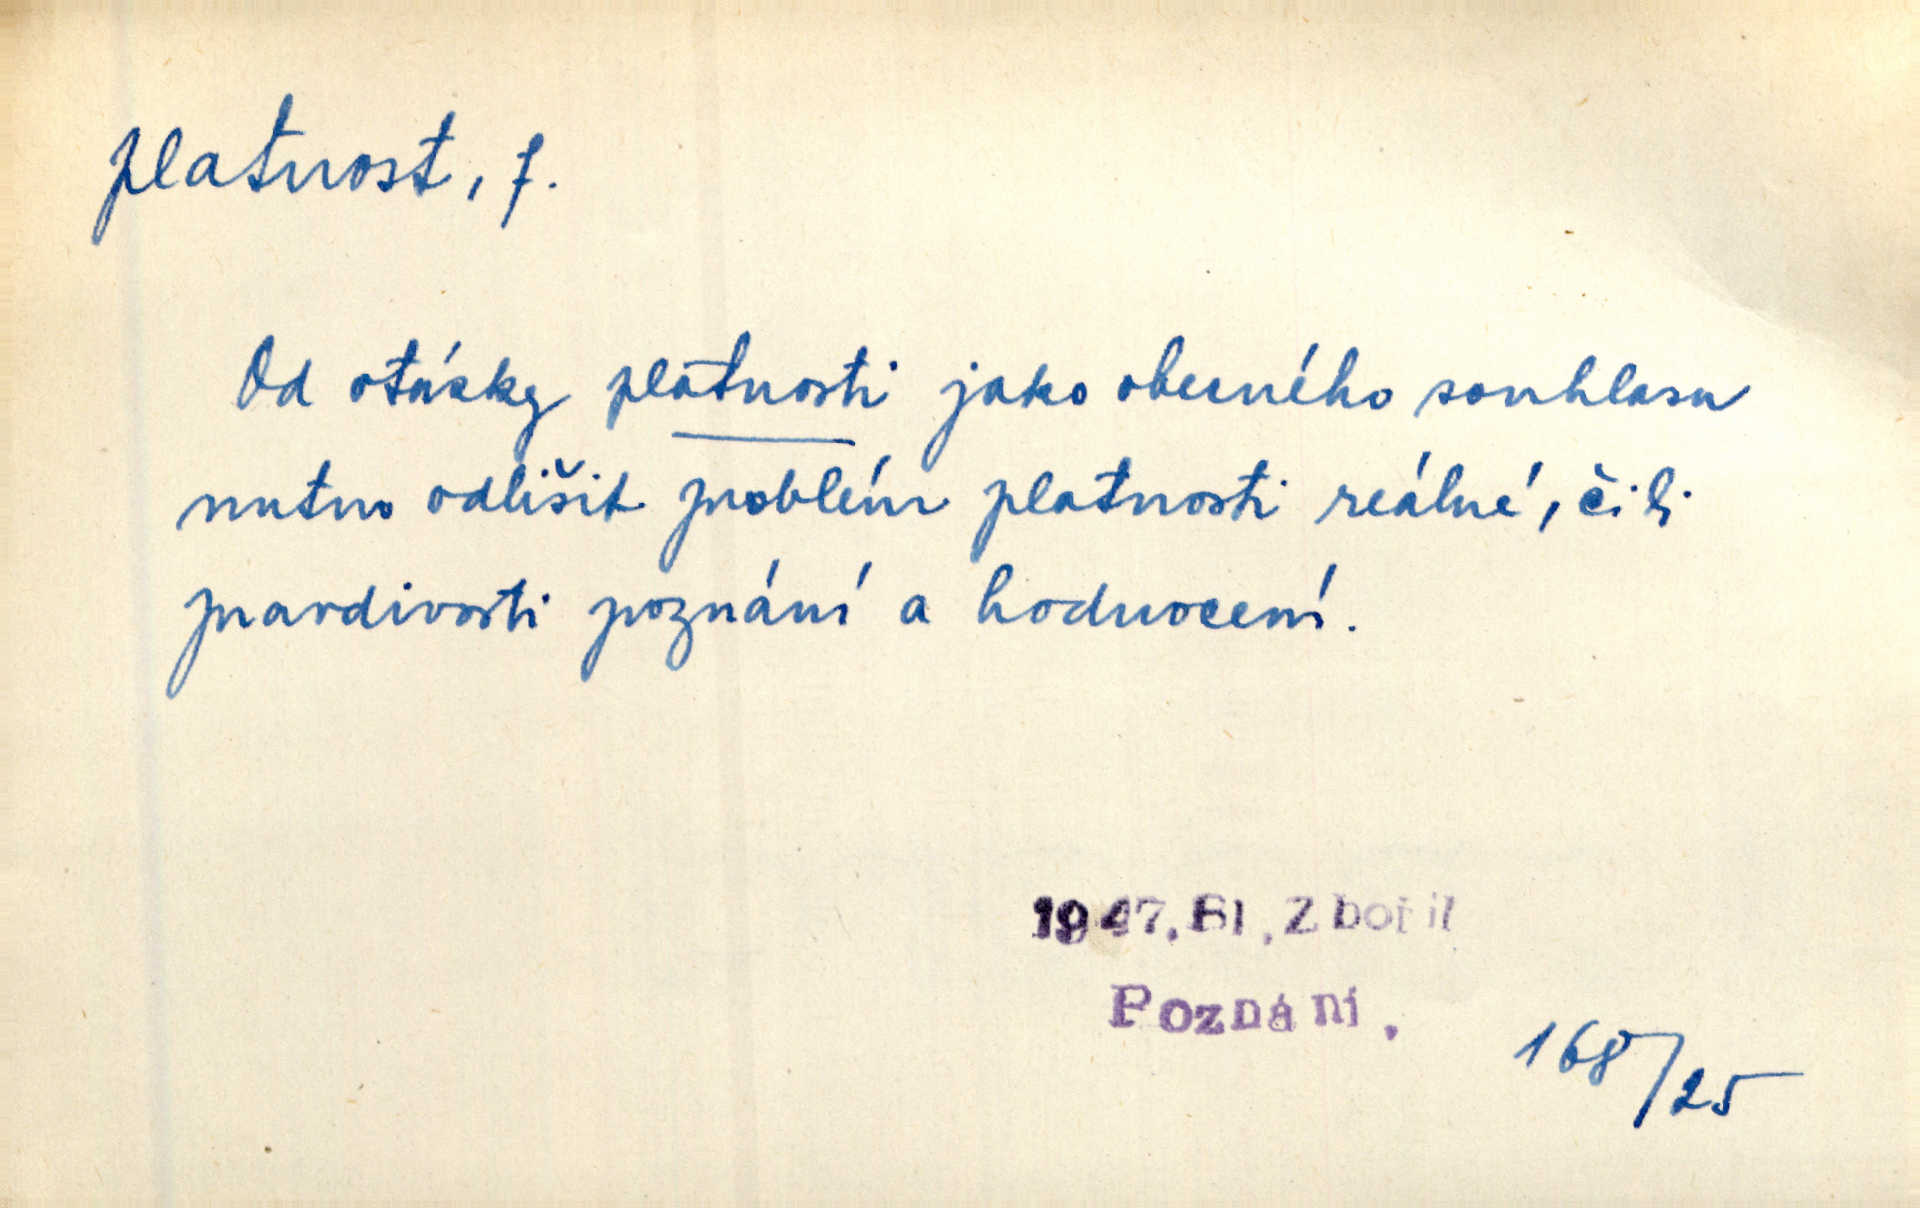 platnost, f.
Od otázky platnosti jako obecného souhlasu
nutno odlišit problém platnosti reálné, čili
pravdivosti poznání a hodnocení.
1947. Bl. Zbořil
Poznání.
168/25